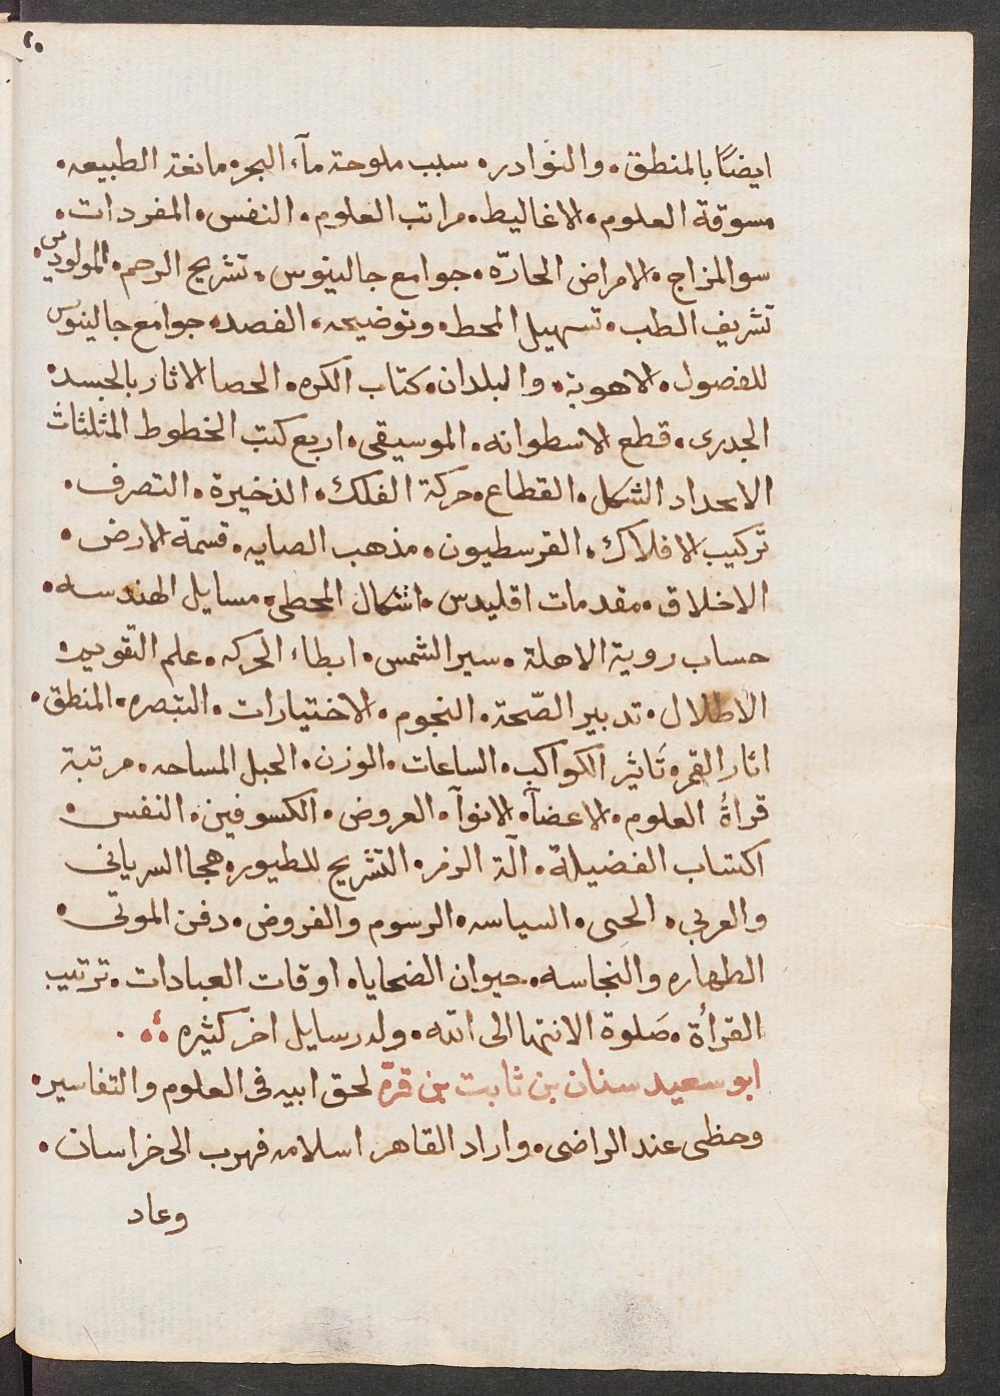 ٢٠
ايضًا بالمنطق . والنوادر . سبب ملوحة مآء البحر . مانعة الطبيعه .
مسوقة العلوم . الاغاليط . مراتب العلوم . النفس . المفردات .
سو المزاج . الامراض الحادّه . جوامع جالينوس . تشريح الرحم . المولودين .
تشريف الطب . تسهيل المحطى وتوضيحه . الفصد . جوامع جالينوس
للفصول . الاهوية . والبلدان . كتاب الكره . الحصا الاثار بالجسد .
الجدرى . قطع الاسطوانه . الموسيقى . اربع كتب الخطوط المثلثات
الاعداد الشكل . القطاع . حركة الفلك . الذخيرة . التصرف .
تركيب الافلاك . القرسطيون . مذهب الصابيه . قسمة الارض .
الاخلاق . مقدمات اقليدس . اشكال المحطى . مسايل الهندسه .
حساب روية الاهلة . سير الشمس . ابطاء الحركه . علم التقويم .
الاطلال . تدبير الصّحة . النجوم . الاختيارات . التبصره . المنطق .
اثار القمر . تَاثير الكواكب . الساعات . الوزن . الحبل المساحه . مرتبة
قراة العلوم . الاعضآ . الانوآ . العروض . الكسوفين . النفس .
اكتساب الفضيلة . آلة الزمر . التشريح للطيور . هجا السريانى
والعربي . الحمى . السياسه . الرسوم والفروض . دفن الموتى .
الطهاره والنجاسه . حيوان الضحايا . اوقات العبادات . ترتيب
القرأة . صَلوة الانتها الى الله . وله رسايل اخر كثيره .
ابو سعيد سنان بن ثابت بن قرّة لحق ابيه فى العلوم والتفاسير .
وحظى عند الراضى . واراد القاهر اسلامه فهرب الى خراسان .
وعاد